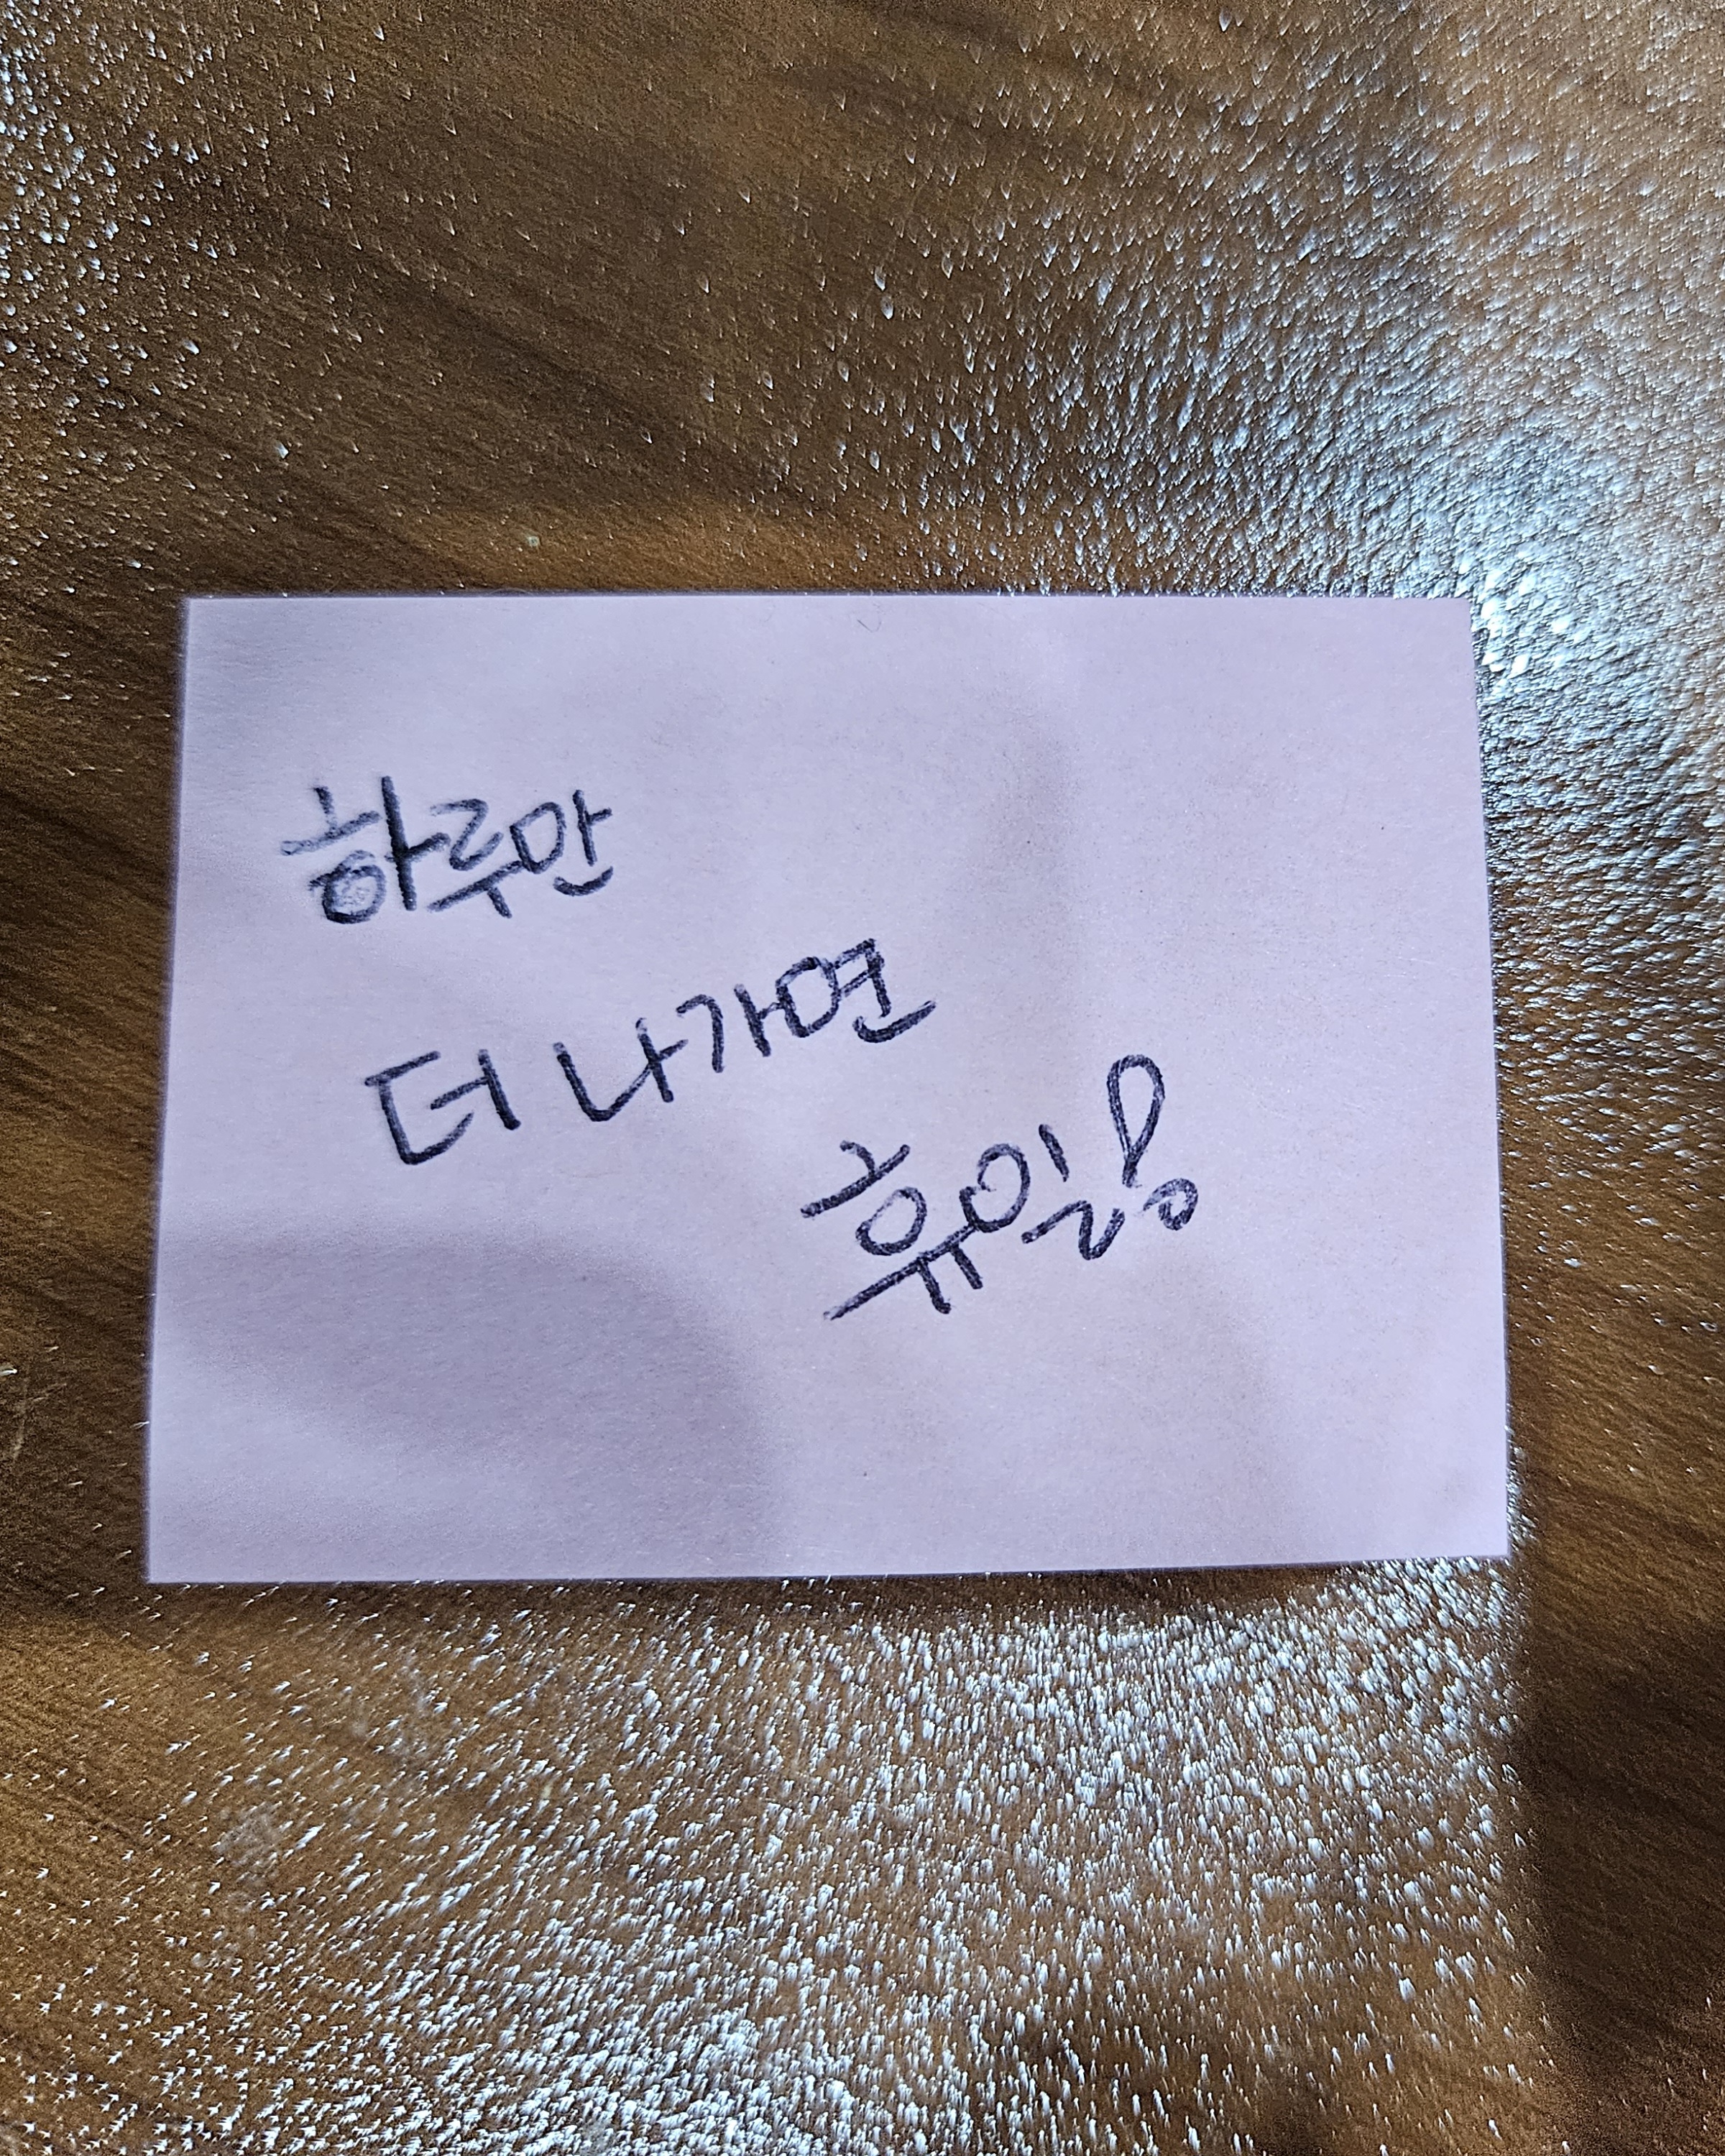 하루만
더 나가면
휴일!